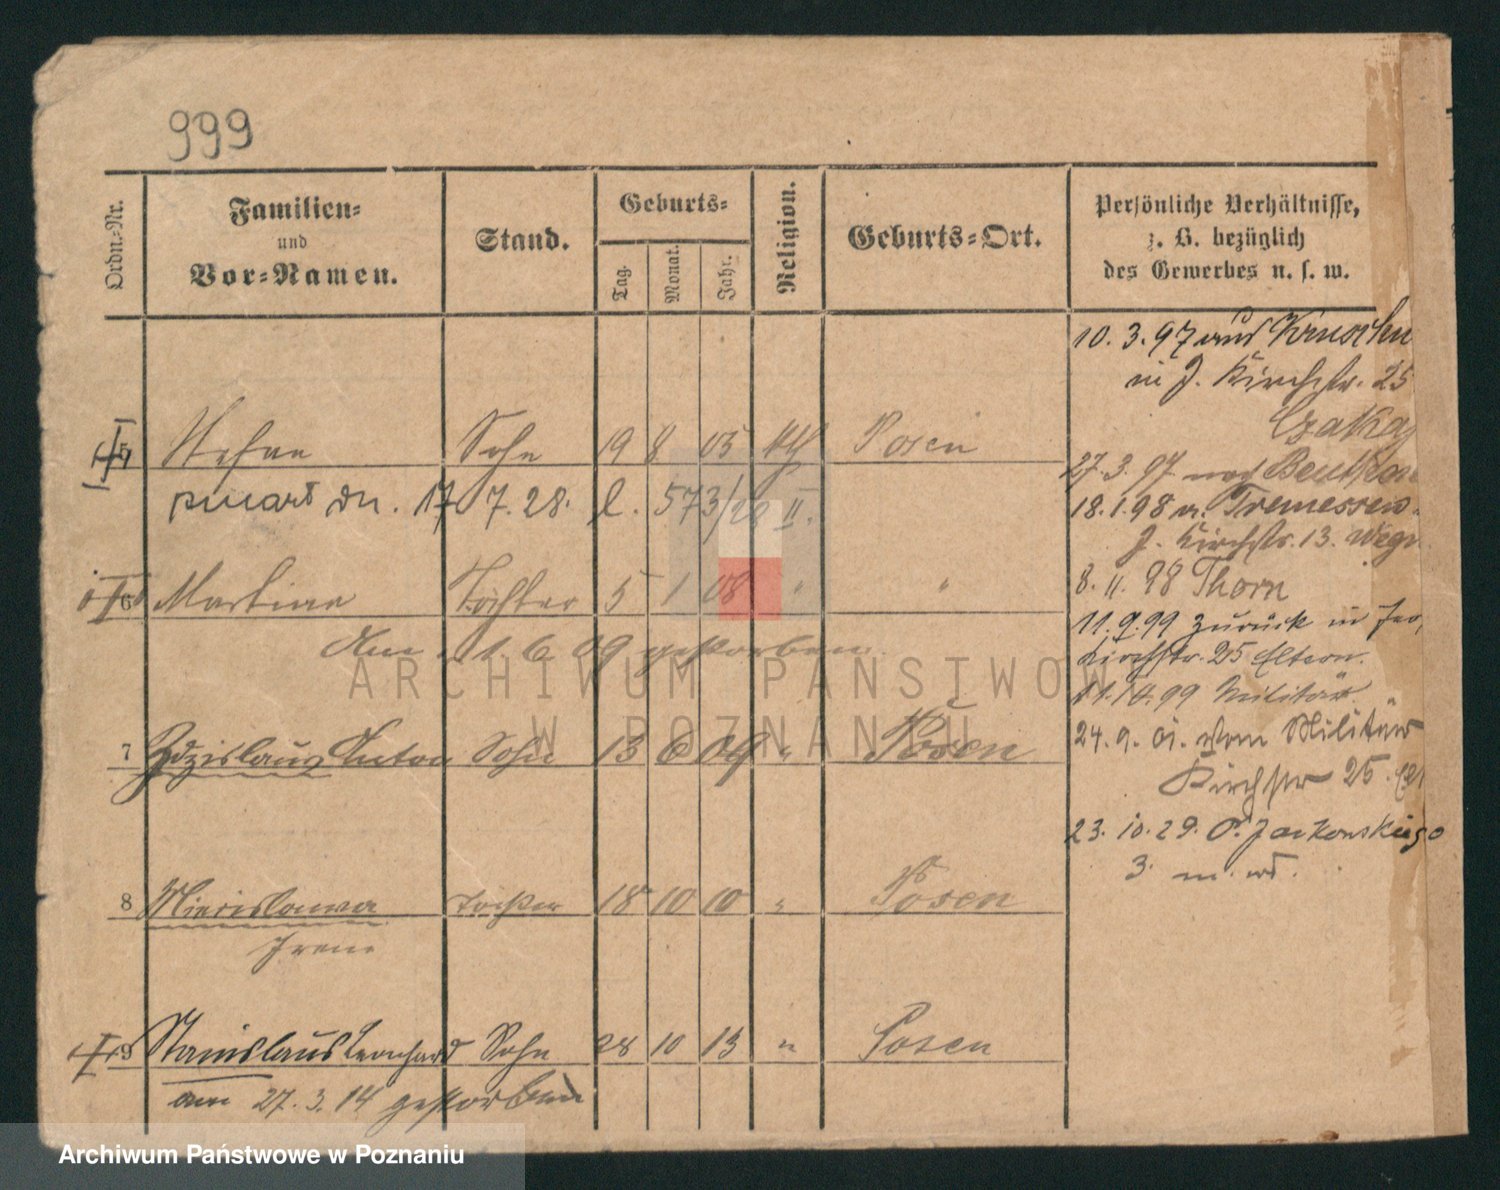 999
Ordn.-Nr.
Familien-
und
Vor-Namen.
Stand.
Geburts-
Tag.
Monat.
Jahr.
Religion.
Geburts-Ort.
Persönliche Verhältnisse,
z. B. bezüglich
des Gewerbes u. s. w.
5 Stefan Sohn 19 8 05 kth Posen
zmarł dn. 17 7. 28. l. 573/28 II.
6 Martine Tochter 5 1 08 " "
Am 1. 6 09 gestorben.
7 Zdzislaus Anton Sohn 13 6 09 " Posen
8 Miecislawa Tochter 18 10 10 " Posen
Irene
9 Stanislaus Leonhard Sohn 28 10 13 " Posen
am 27. 3. 14 gestorben
10. 3. 97 aus
in J. Kirchstr. 25
27. 3. 97 nach
18. 1. 98 n. Tremessen
J. Kirchstr. 13.
8. 11. 98 Thorn
11. 9. 99 zurück in
Kirchstr. 25 Eltern.
11. 10. 99 Militär
24. 9. 01. vom Militär
Kirchstr 25.
23. 10. 29.
3 m.
ARCHIWUM PAŃSTWOWE
W POZNANIU
Archiwum Państwowe w Poznaniu